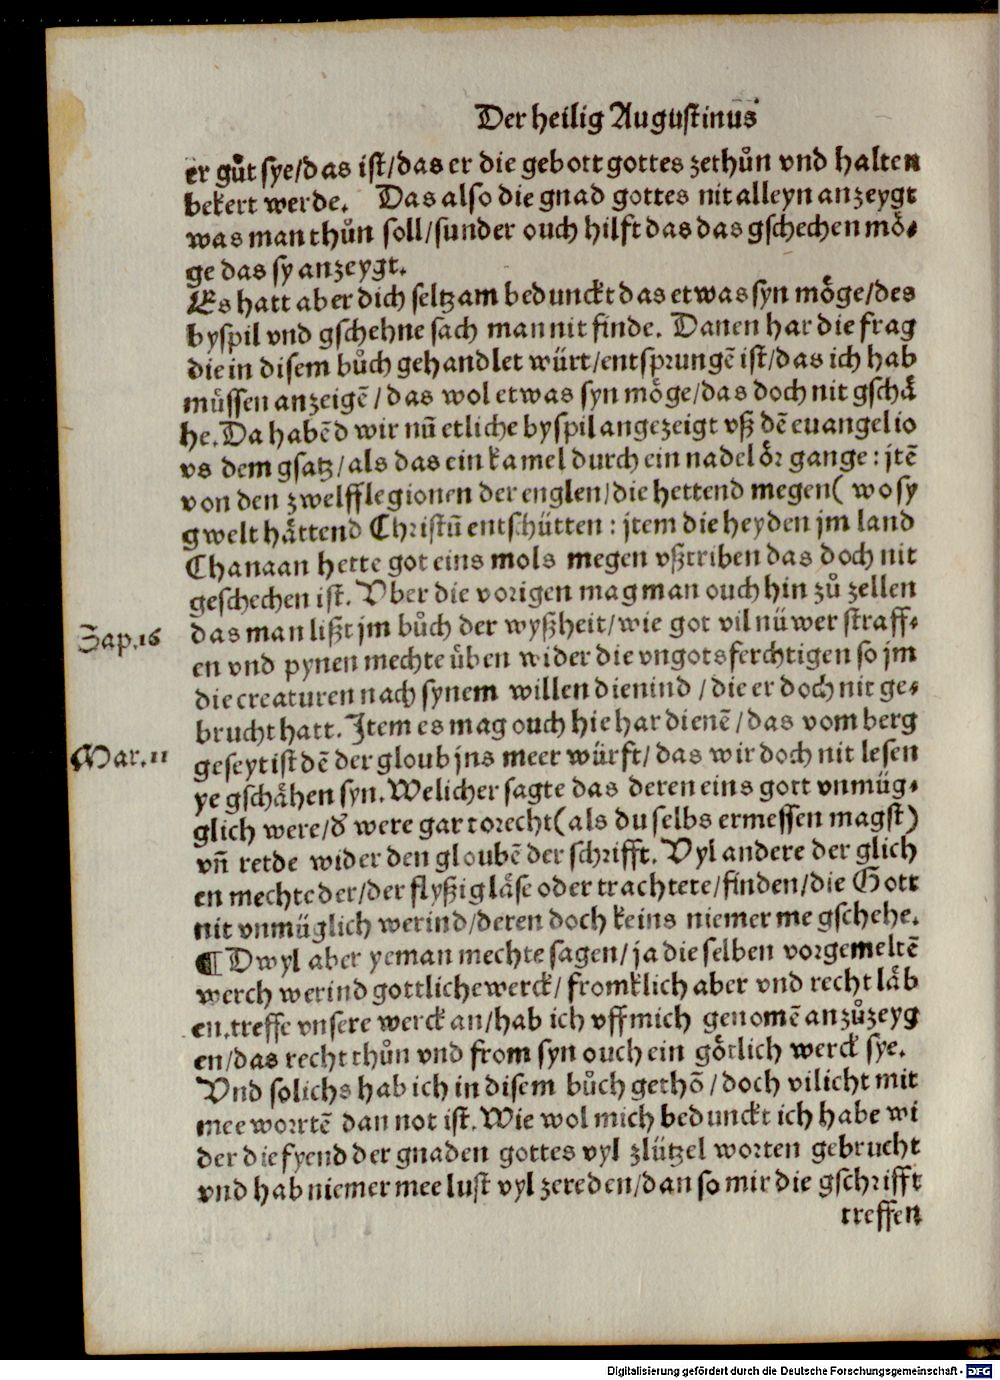 Der heilig Augustinus
er gůt sye/das ist/das er die gebott gottes zethůn vnd halten
bekert werde. Das also die gnad gottes nit alleyn anzeygt
was man thůn soll/sunder ouch hilft das das gschechen mö⸗
ge das sy anzeygt.
Es hatt aber dich seltzam bedunckt das etwas syn möge/des
byspil vnd gschehne sach man nit finde. Danen har die frag
die in disem bůch gehandlet würt/entsprungē ist/das ich hab
müssen anzeigē/das wol etwas syn möge/das doch nit gschä
he. Da habēd wir nū etliche byspil angezeigt vß dē euangelio
vs dem gsatz/als das ein kamel durch ein nadelör gange: jtē
von den zwelff legionen der englen/die hettend megen( wo sy
gwelt hättend Christū entschütten: jtem die heyden jm land
Chanaan hette got eins mols megen vßtriben das doch nit
geschechen ist. Vber die vorigen mag man ouch hin zů zellen
Sap.16
das man lißt jm bůch der wyßheit/wie got vil nüwer straff⸗
en vnd pynen mechte üben wider die vngotsferchtigen so jm
die creaturen nach synem willen dienind/die er doch nit ge⸗
brucht hatt. Item es mag ouch hie har dienē/das vom berg
Mar.11
geseyt ist dē der gloub jns meer würft/das wir doch nit lesen
ye gschähen syn. Welicher sagte das deren eins gott vnmüg⸗
glich were/d̓ were gar torecht(als du selbs ermessen magst)
vn̄ retde wider den gloubē der schrifft. Vyl andere der glich
en mechte der/der flyßig läse oder trachtete/finden/die Gott
nit vnmüglich werind/deren doch keins niemer me gschehe.
¶ Dwyl aber yeman mechte sagen/ja die selben vorgemeltē
werch werind gottliche werck/fromklich aber vnd recht läb
en.treffe vnsere werck an/hab ich vff mich genomē anzůzeyg
en/das recht thůn vnd from syn ouch ein götlich werck sye.
Vnd solichs hab ich in disem bůch gethō/doch vilicht mit
mee worrtē dan not ist. Wie wol mich bedunckt ich habe wi
der die fyend der gnaden gottes vyl zlützel worten gebrucht
vnd hab niemer mee lust vyl zereden/dan so mir die gschrifft
treffen
Digitalisierung gefördert durch die Deutsche Forschungsgemeinschaft - DFG